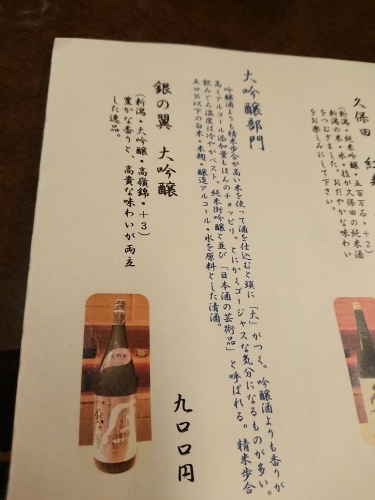 久保田
(新潟・純米吟醸・五百万石・+2)
新潟の米・水・技が久保田の純米酒
をつむぎました。おだやかな味わい
をお楽しみにして下さい。
大吟醸部門
吟醸酒よりも精米歩合が高い米を使って酒を仕込むと頭に「大」がつく。吟醸酒よりも香りが
高くアルコール添加量もほんのチョッピリ。とにかくゴージャスな気分になるものが多い。
飲みごろ温度は冷やがベスト。純米大吟醸と並び「日本酒の芸術品」と呼ばれる。精米歩合
五〇%以下の白米・米麹、醸造アルコール・水を原料とした清酒。
銀の翼 大吟醸
(新潟・大吟醸・高嶺錦・+3)
豊かな香りと、高貴な味わいが両立
した逸品。
九〇〇円